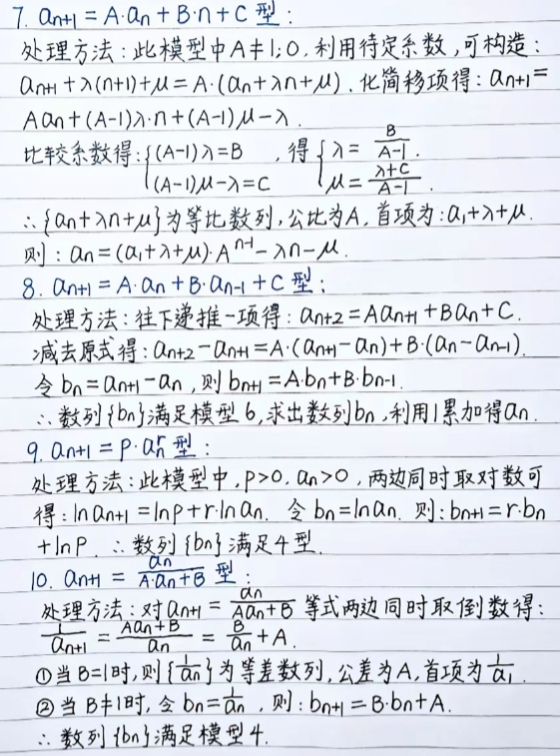 7. aₙ₊₁ = A·aₙ + B·n + C 型：
处理方法：此模型中A≠1;0. 利用待定系数，可构造：
aₙ₊₁ + λ(n+1) + μ = A·(aₙ + λn + μ). 化简移项得：aₙ₊₁ =
Aaₙ + (A-1)λ·n + (A-1)μ - λ.
比较系数得：{(A-1)λ = B , 得 {λ = B/(A-1).
(A-1)μ - λ = C μ = (λ+C)/(A-1).
∴ {aₙ + λn + μ}为等比数列，公比为A，首项为：a₁ + λ + μ.
则：aₙ = (a₁ + λ + μ)·Aⁿ⁻¹ - λn - μ.
8. aₙ₊₁ = A·aₙ + B·aₙ₋₁ + C 型：
处理方法：往下递推一项得：aₙ₊₂ = Aaₙ₊₁ + Baₙ + C.
减去原式得：aₙ₊₂ - aₙ₊₁ = A·(aₙ₊₁ - aₙ) + B·(aₙ - aₙ₋₁).
令 bₙ = aₙ₊₁ - aₙ，则 bₙ₊₁ = A·bₙ + B·bₙ₋₁.
∴ 数列{bₙ}满足模型6，求出数列bₙ，利用1累加得aₙ.
9. aₙ₊₁ = p·aₙʳ 型：
处理方法：此模型中，p>0. aₙ>0，两边同时取对数可
得：ln aₙ₊₁ = ln p + r·ln aₙ. 令 bₙ = ln aₙ. 则：bₙ₊₁ = r·bₙ
+ ln p. ∴ 数列{bₙ}满足4型.
10. aₙ₊₁ = aₙ/(A·aₙ+B) 型：
处理方法：对 aₙ₊₁ = aₙ/(Aaₙ+B) 等式两边同时取倒数得：
1/aₙ₊₁ = (Aaₙ+B)/aₙ = B/aₙ + A.
①当B=1时，则{1/aₙ}为等差数列，公差为A，首项为1/a₁.
②当B≠1时，令 bₙ = 1/aₙ，则：bₙ₊₁ = B·bₙ + A.
∴ 数列{bₙ}满足模型4.